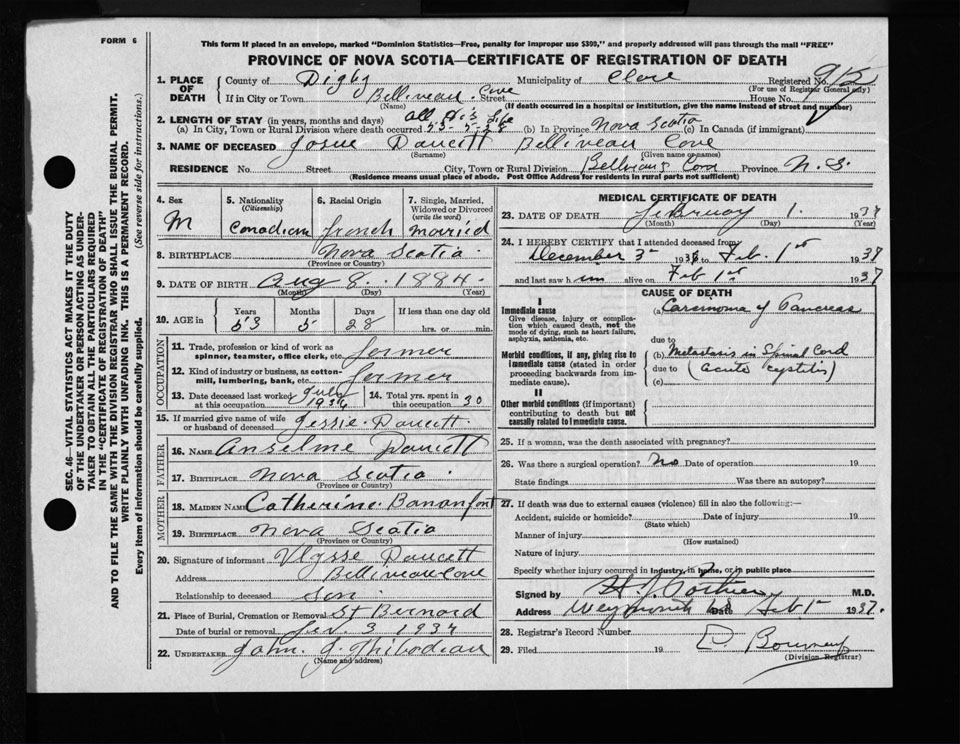 FORM 6
This form if placed in an envelope, marked "Dominion Statistics—Free, penalty for improper use $300," and properly addressed will pass through the mail "FREE"
PROVINCE OF NOVA SCOTIA—CERTIFICATE OF REGISTRATION OF DEATH
1. PLACE OF DEATH County of Digby Municipality of Clare Registered No.
(For use of Registrar General only)
If in City or Town Belliveau Cove Street House No.
(Name) (If death occurred in a hospital or institution, give the name instead of street and number)
2. LENGTH OF STAY (in years, months and days) All his life
(a) In City, Town or Rural Division where death occurred 53-5-28 (b) In Province Nova Scotia (c) In Canada (if immigrant)
3. NAME OF DECEASED Josue Doucett Belliveau Cove
(Surname) (Given name or names)
RESIDENCE No. Street City, Town or Rural Division Cove Province N.S.
(Residence means usual place of abode. Post Office Address for residents in rural parts not sufficient)
4. Sex M
5. Nationality (Citizenship) Canadian
6. Racial Origin french
7. Single, Married, Widowed or Divorced (write the word) married
8. BIRTHPLACE Nova Scotia
(Province or Country)
9. DATE OF BIRTH Aug 8. 1884
(Month) (Day) (Year)
10. AGE in Years Months Days If less than one day old
53 5 28 hrs. or min.
OCCUPATION
11. Trade, profession or kind of work as spinner, teamster, office clerk, etc. farmer
12. Kind of industry or business, as cotton-mill, lumbering, bank, etc. farmer
13. Date deceased last worked at this occupation July 1936
14. Total yrs. spent in this occupation 30
15. If married give name of wife or husband of deceased Jessie Doucett
FATHER
16. NAME Anselme Doucett
17. BIRTHPLACE Nova Scotia
(Province or Country)
MOTHER
18. MAIDEN NAME Catherine
19. BIRTHPLACE Nova Scotia
(Province or Country)
20. Signature of informant Ulysse Doucett
Address Belliveau Cove
Relationship to deceased Son
21. Place of Burial, Cremation or Removal St Bernard
Date of burial or removal 3 1937
22. UNDERTAKER John J. Thibodeau
(Name and address)
MEDICAL CERTIFICATE OF DEATH
23. DATE OF DEATH February 1. 1937
(Month) (Day) (Year)
24. I HEREBY CERTIFY that I attended deceased from
December 3 1936 to Feb. 1st 1937
and last saw him alive on Feb 1st 1937
CAUSE OF DEATH
I
Immediate cause
Give disease, injury or complication which caused death, not the mode of dying, such as heart failure, asphyxia, asthenia, etc.
(a) Carcinoma of Pancreas
due to
Morbid conditions, if any, giving rise to immediate cause (stated in order proceeding backwards from immediate cause).
(b) Metastasis in Spinal Cord
due to (acute cystitis)
(c)
II
Other morbid conditions (if important) contributing to death but not causally related to immediate cause.
25. If a woman, was the death associated with pregnancy?
26. Was there a surgical operation? No Date of operation 19
State findings Was there an autopsy?
27. If death was due to external causes (violence) fill in also the following:—
Accident, suicide or homicide? Date of injury 19
(State which)
Manner of injury
(How sustained)
Nature of injury
Specify whether injury occurred in industry, in home, or in public place
Signed by M.D.
Address Weymouth Date Feb 1st 1937.
28. Registrar's Record Number
29. Filed 19
(Division Registrar)
SEC. 46—VITAL STATISTICS ACT MAKES IT THE DUTY
OF THE UNDERTAKER OR PERSON ACTING AS UNDER-
TAKER TO OBTAIN ALL THE PARTICULARS REQUIRED
IN THE "CERTIFICATE OF REGISTRATION OF DEATH"
AND TO FILE THE SAME WITH THE DIVISION REGISTRAR WHO SHALL ISSUE THE BURIAL PERMIT.
WRITE PLAINLY WITH UNFADING INK. THIS IS A PERMANENT RECORD.
Every item of information should be carefully supplied. (See reverse side for instructions.)